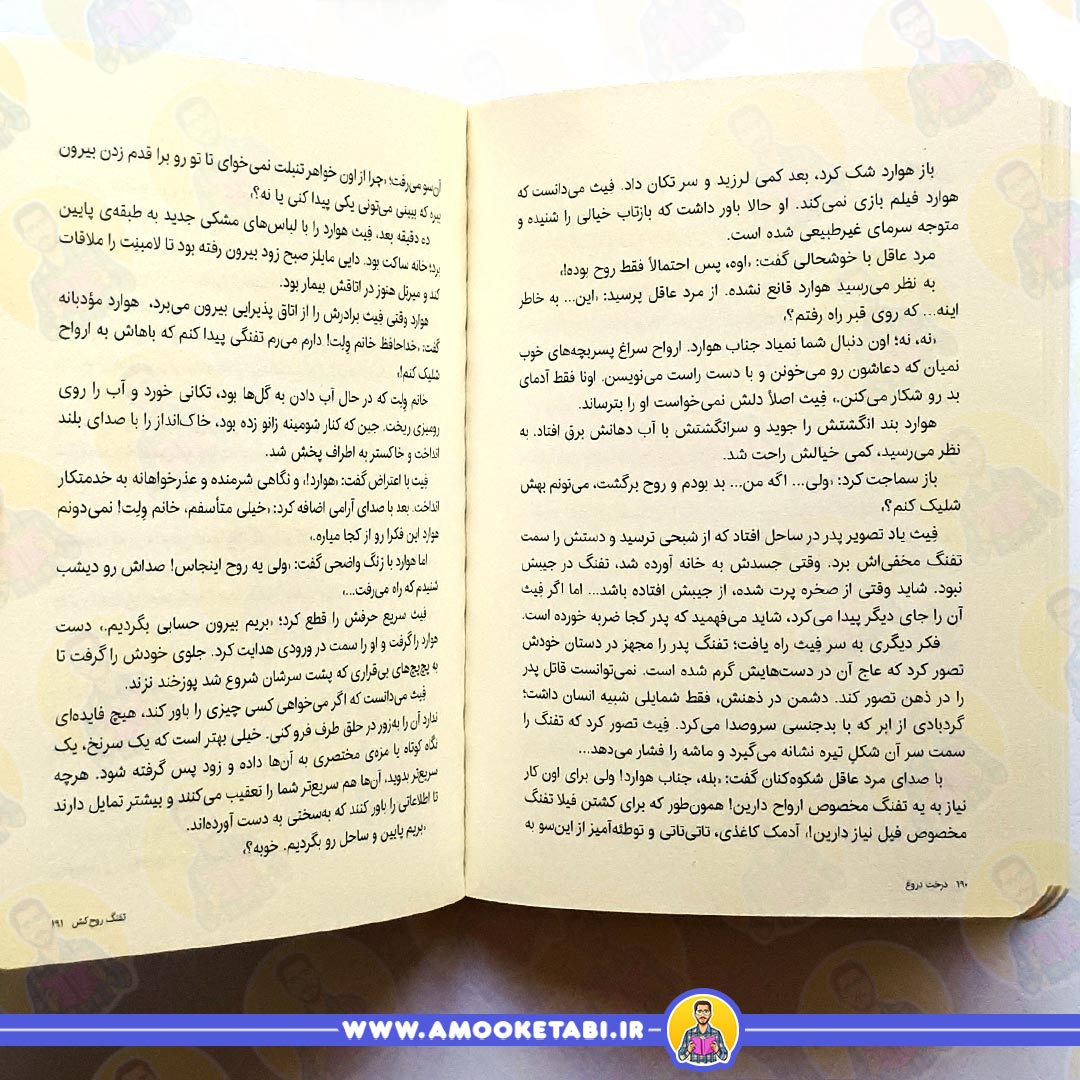 باز هوارد شک کرد، بعد کمی لرزید و سر تکان داد. فِیث می‌دانست که
هوارد فیلم بازی نمی‌کند. او حالا باور داشت که بازتاب خیالی را شنیده و
متوجه سرمای غیرطبیعی شده است.
مرد عاقل با خوشحالی گفت: «اوه، پس احتمالاً فقط روح بوده!»
به نظر می‌رسید هوارد قانع نشده. از مرد عاقل پرسید: «این... به خاطر
اینه... که روی قبر راه رفتم؟»
«نه، نه؛ اون دنبال شما نمیاد جناب هوارد. ارواح سراغ پسربچه‌های خوب
نمیان که دعاشون رو می‌خونن و با دست راست می‌نویسن. اونا فقط آدمای
بد رو شکار می‌کنن.» فِیث اصلاً دلش نمی‌خواست او را بترساند.
هوارد بند انگشتش را جوید و سرانگشتش با آب دهانش برق افتاد. به
نظر می‌رسید، کمی خیالش راحت شد.
باز سماجت کرد: «ولی... اگه من... بد بودم و روح برگشت، می‌تونم بهش
شلیک کنم؟»
فِیث یاد تصویر پدر در ساحل افتاد که از شبحی ترسید و دستش را سمت
تفنگ مخفی‌اش برد. وقتی جسدش به خانه آورده شد، تفنگ در جیبش
نبود. شاید وقتی از صخره پرت شده، از جیبش افتاده باشد... اما اگر فِیث
آن را جای دیگر پیدا می‌کرد، شاید می‌فهمید که پدر کجا ضربه خورده است.
فکر دیگری به سر فِیث راه یافت؛ تفنگ پدر را مجهز در دستان خودش
تصور کرد که عاج آن در دست‌هایش گرم شده است. نمی‌توانست قاتل پدر
را در ذهن تصور کند. دشمن در ذهنش، فقط شمایلی شبیه انسان داشت؛
گردبادی از ابر که با بدجنسی سروصدا می‌کرد. فِیث تصور کرد که تفنگ را
سمت سر آن شکلِ تیره نشانه می‌گیرد و ماشه را فشار می‌دهد...
با صدای مرد عاقل شکوه‌کنان گفت: «بله، جناب هوارد! ولی برای اون کار
نیاز به یه تفنگ مخصوص ارواح دارین! همون‌طور که برای کشتن فیلا تفنگ
مخصوص فیل نیاز دارین!» آدمک کاغذی، تاتی‌تاتی و توطئه‌آمیز از این‌سو به
۱۹۰ درخت دروغ
آن‌سو می‌رفت؛ «چرا از اون خواهر تنبلت نمی‌خوای تا تو رو برا قدم زدن بیرون
ببره که ببینی می‌تونی یکی پیدا کنی یا نه؟»
ده دقیقه بعد، فِیث هوارد را با لباس‌های مشکی جدید به طبقه‌ی پایین
برد؛ خانه ساکت بود. دایی مایلز صبح زود بیرون رفته بود تا لامبنِت را ملاقات
کند و میرتل هنوز در اتاقش بیمار بود.
هوارد وقتی فِیث برادرش را از اتاق پذیرایی بیرون می‌برد، هوارد مؤدبانه
گفت: «خداحافظ خانم وِلِت! دارم می‌رم تفنگی پیدا کنم که باهاش به ارواح
شلیک کنم!»
خانم وِلِت که در حال آب دادن به گل‌ها بود، تکانی خورد و آب را روی
رومیزی ریخت. جین که کنار شومینه زانو زده بود، خاک‌انداز را با صدای بلند
انداخت و خاکستر به اطراف پخش شد.
فِیث با اعتراض گفت: «هوارد!» و نگاهی شرمنده و عذرخواهانه به خدمتکار
انداخت. بعد با صدای آرامی اضافه کرد: «خیلی متأسفم، خانم وِلِت! نمی‌دونم
هوارد این فکرا رو از کجا میاره.»
اما هوارد با زنگ واضحی گفت: «ولی یه روح اینجاس! صداش رو دیشب
شنیدم که راه می‌رفت...»
فِیث سریع حرفش را قطع کرد؛ «بریم بیرون حسابی بگردیم.» دست
هوارد را گرفت و او را سمت در ورودی هدایت کرد. جلوی خودش را گرفت تا
به پچ‌پچ‌های بی‌قراری که پشت سرشان شروع شد پوزخند نزند.
فِیث می‌دانست که اگر می‌خواهی کسی چیزی را باور کند، هیچ فایده‌ای
ندارد آن را به‌زور در حلق طرف فرو کنی. خیلی بهتر است که یک سرنخ، یک
نگاه کوتاه یا مزه‌ی مختصری به آن‌ها داده و زود پس گرفته شود. هرچه
سریع‌تر بدوید، آن‌ها هم سریع‌تر شما را تعقیب می‌کنند و بیشتر تمایل دارند
تا اطلاعاتی را باور کنند که به‌سختی به دست آورده‌اند.
«بریم پایین و ساحل رو بگردیم. خوبه؟»
تفنگ روح‌کش ۱۹۱
WWW.AMOOKETABI.IR